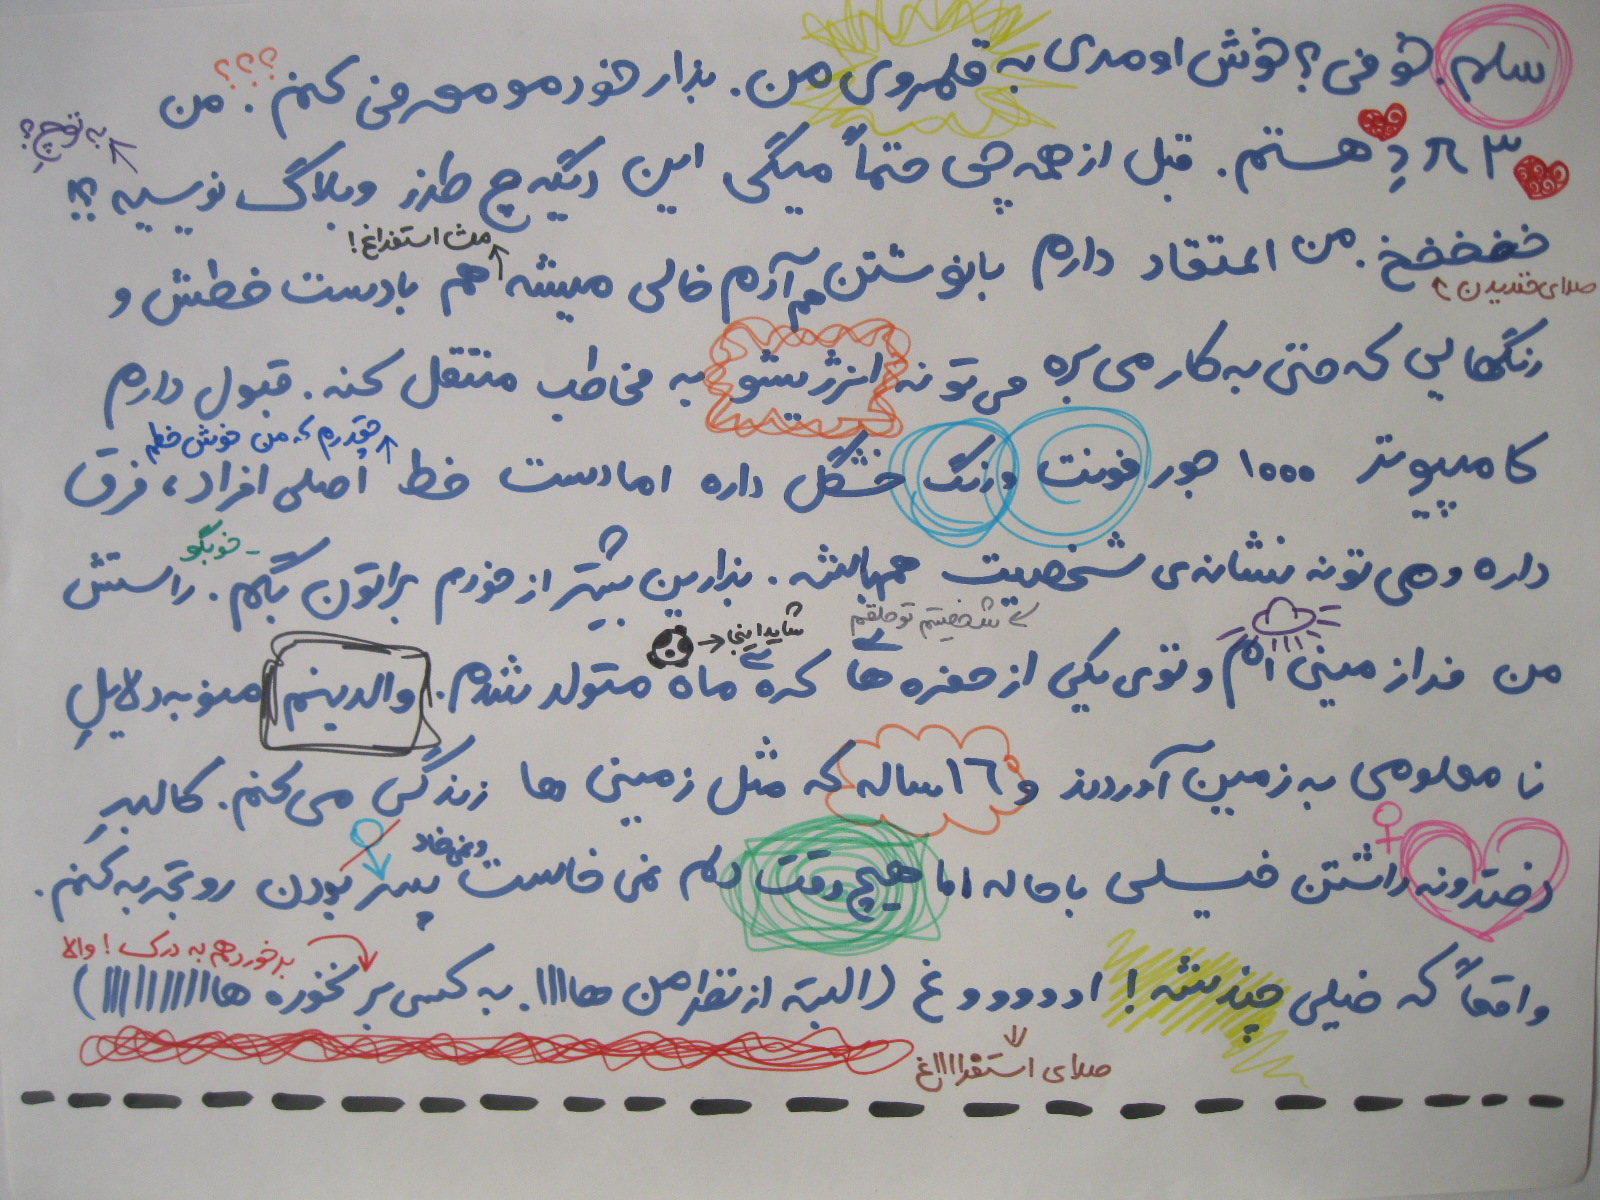 سلم. خوفی؟ خوش اومدی به قلمروی من. بذار خودمو معرفی کنم. من
؟؟؟
به توچِ؟
۳ π دِ هستم. قبل از همه چی حتماً میگی این دیگه چ طرز وبلاگ نویسیه؟!
مث استفراغ!
خخخخخ. من اعتقاد دارم با نوشتن هم آزم خالی میشه هم بادست خطش و
صدای خندیدن
رنگهایی که حتی به کار می بره می تونه انرژیشو به مخاطب منتقل کنه. قبول دارم
چقدرم که من خوش خطم
کامپیوتر ۱۰۰۰ جور فونت و رنگ خشگل داره اما دست خط اصلی افراد، فرق
داره و می تونه نشانه ی شخصیت هم باشه. بذارین بیشتر از خودم براتون بگم. راستش
- خو بگو
شخصیتم تو حلقم
شاید اینجا
من فراز مینی ام و توی یکی از حفره های کره ی ماه متولد شدم. والدینم منو به دلایلِ
نا معلومی به زمین آوردند و ١٦ ساله که مثل زمینی ها زندگی می کنم. کالبدِ
دخترونه داشتن خیلی باحاله اما هیچ وقت دلم نمی خاست پسر بودن رو تجربه کنم.
و نمی خاد
واقعاً که خیلی چندشه! اووووووغ (البته از نظر من هااا. به کسی بر نخوره هااااااااااا)
بر خوردهم به درک! والا
صدای استفراااااغ